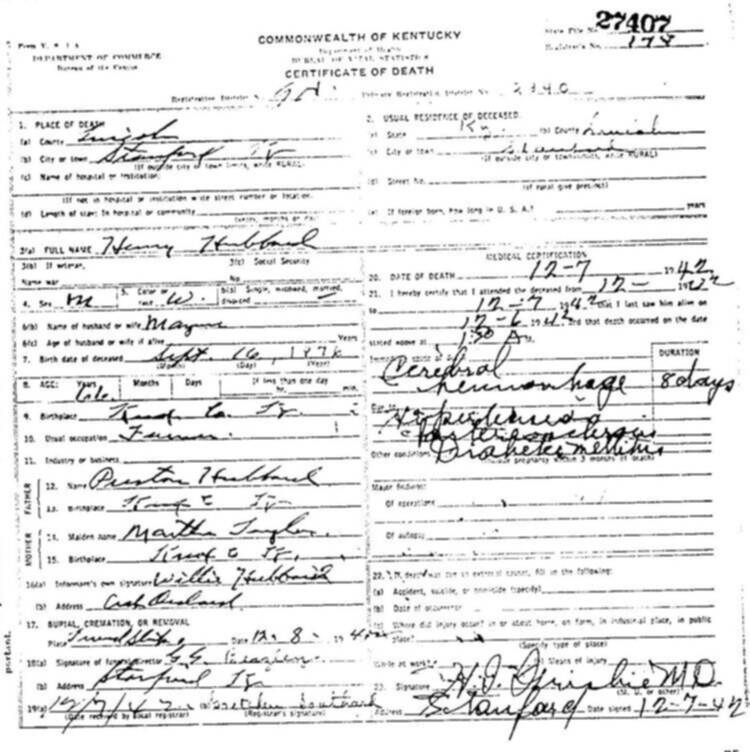 27407
COMMONWEALTH OF KENTUCKY
State File No.
Form V. S. 1 A
DEPARTMENT OF COMMERCE
Bureau of the Census
Department of Health
BUREAU OF VITAL STATISTICS
Registrar's No. 174
CERTIFICATE OF DEATH
Registration District No.
Primary Registration District No. 2390
1. PLACE OF DEATH
(a) County Lincoln
(b) City or town Stanford Ky
(If outside city or town limits, write RURAL)
(c) Name of hospital or institution:
(If not in hospital or institution write street number or location.
(d) Length of stay: In hospital or community
(years, months or days)
3(a) FULL NAME Henry Hubbard
3(b) If veteran,
Name war
3(c) Social Security
No.
4. Sex M
5. Color or
race W.
6(a) Single, widowed, married,
divorced
6(b) Name of husband or wife
6(c) Age of husband or wife if alive Years
7. Birth date of deceased Sept. 16, 1876
(Month) (Day) (Year)
8. AGE: Years Months Days If less than one day
66 hr. min.
9. Birthplace Knox Co. Ky
10. Usual occupation Farmer
11. Industry or business
FATHER
12. Name Preston Hubbard
13. Birthplace Knox C Ky
MOTHER
14. Maiden name Martha
15. Birthplace Knox C Ky
16(a) Informant's own signature Willie Hubbard
(b) Address Crab Orchard
17. BURIAL, CREMATION, OR REMOVAL
Place Friendship Date 12-8-1942
18(a) Signature of funeral director
(b) Address Stanford Ky
19(a) 12/7/42 (b) Gretchen Southard
(Date received by local registrar) (Registrar's signature)
2. USUAL RESIDENCE OF DECEASED
(a) State Ky. (b) County Lincoln
(c) City or town Stanford
(If outside city or town limits, write RURAL)
(d) Street No.
(If rural give precinct)
(e) If foreign born, how long in U. S. A.? years
MEDICAL CERTIFICATION
20. DATE OF DEATH 12-7 1942
21. I hereby certify that I attended the deceased from 12- 1942
to 12-7 1942 that I last saw him alive on
12-6 1942 and that death occurred on the date
stated above at 1:30 A m.
Immediate cause of death
DURATION
Cerebral
hemorrhage 8 days
Due to Hypertension &
Arteriosclerosis
Other conditions Diabetes mellitus
(Include pregnancy within 3 months of death)
Major findings:
Of operations
Of autopsy
22. If death was due to an external cause, fill in the following:
(a) Accident, suicide, or homicide (specify)
(b) Date of occurrence
(c) Where did injury occur? in or about home, on farm, in industrial place, in public
place?
(Specify type of place)
While at work? (e) Means of injury
23. Signature M.D.
(M. D. or other)
Address Stanford Date signed 12-7-42